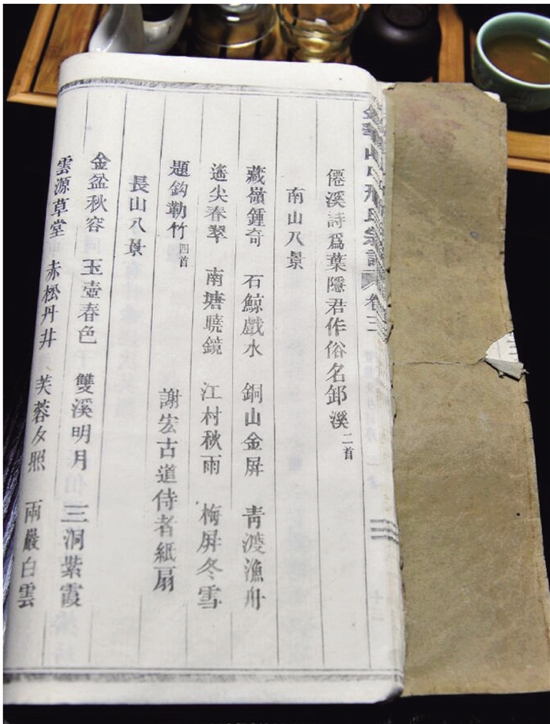 氏宗譜 卷三
僊溪詩爲葉隱君作俗名溪 二首
南山八景
藏嶺鍾奇 石鯨戲水 銅山金屏 青渡漁舟
遙尖春翠 南塘曉鏡 江村秋雨 梅屏冬雪
題鈎勒竹 四首 謝宏古道侍者紙扇
長山八景
金盆秋容 玉壺春色 雙溪明月 三洞紫霞
雲源草堂 赤松丹井 芙蓉夕照 兩巖白雲